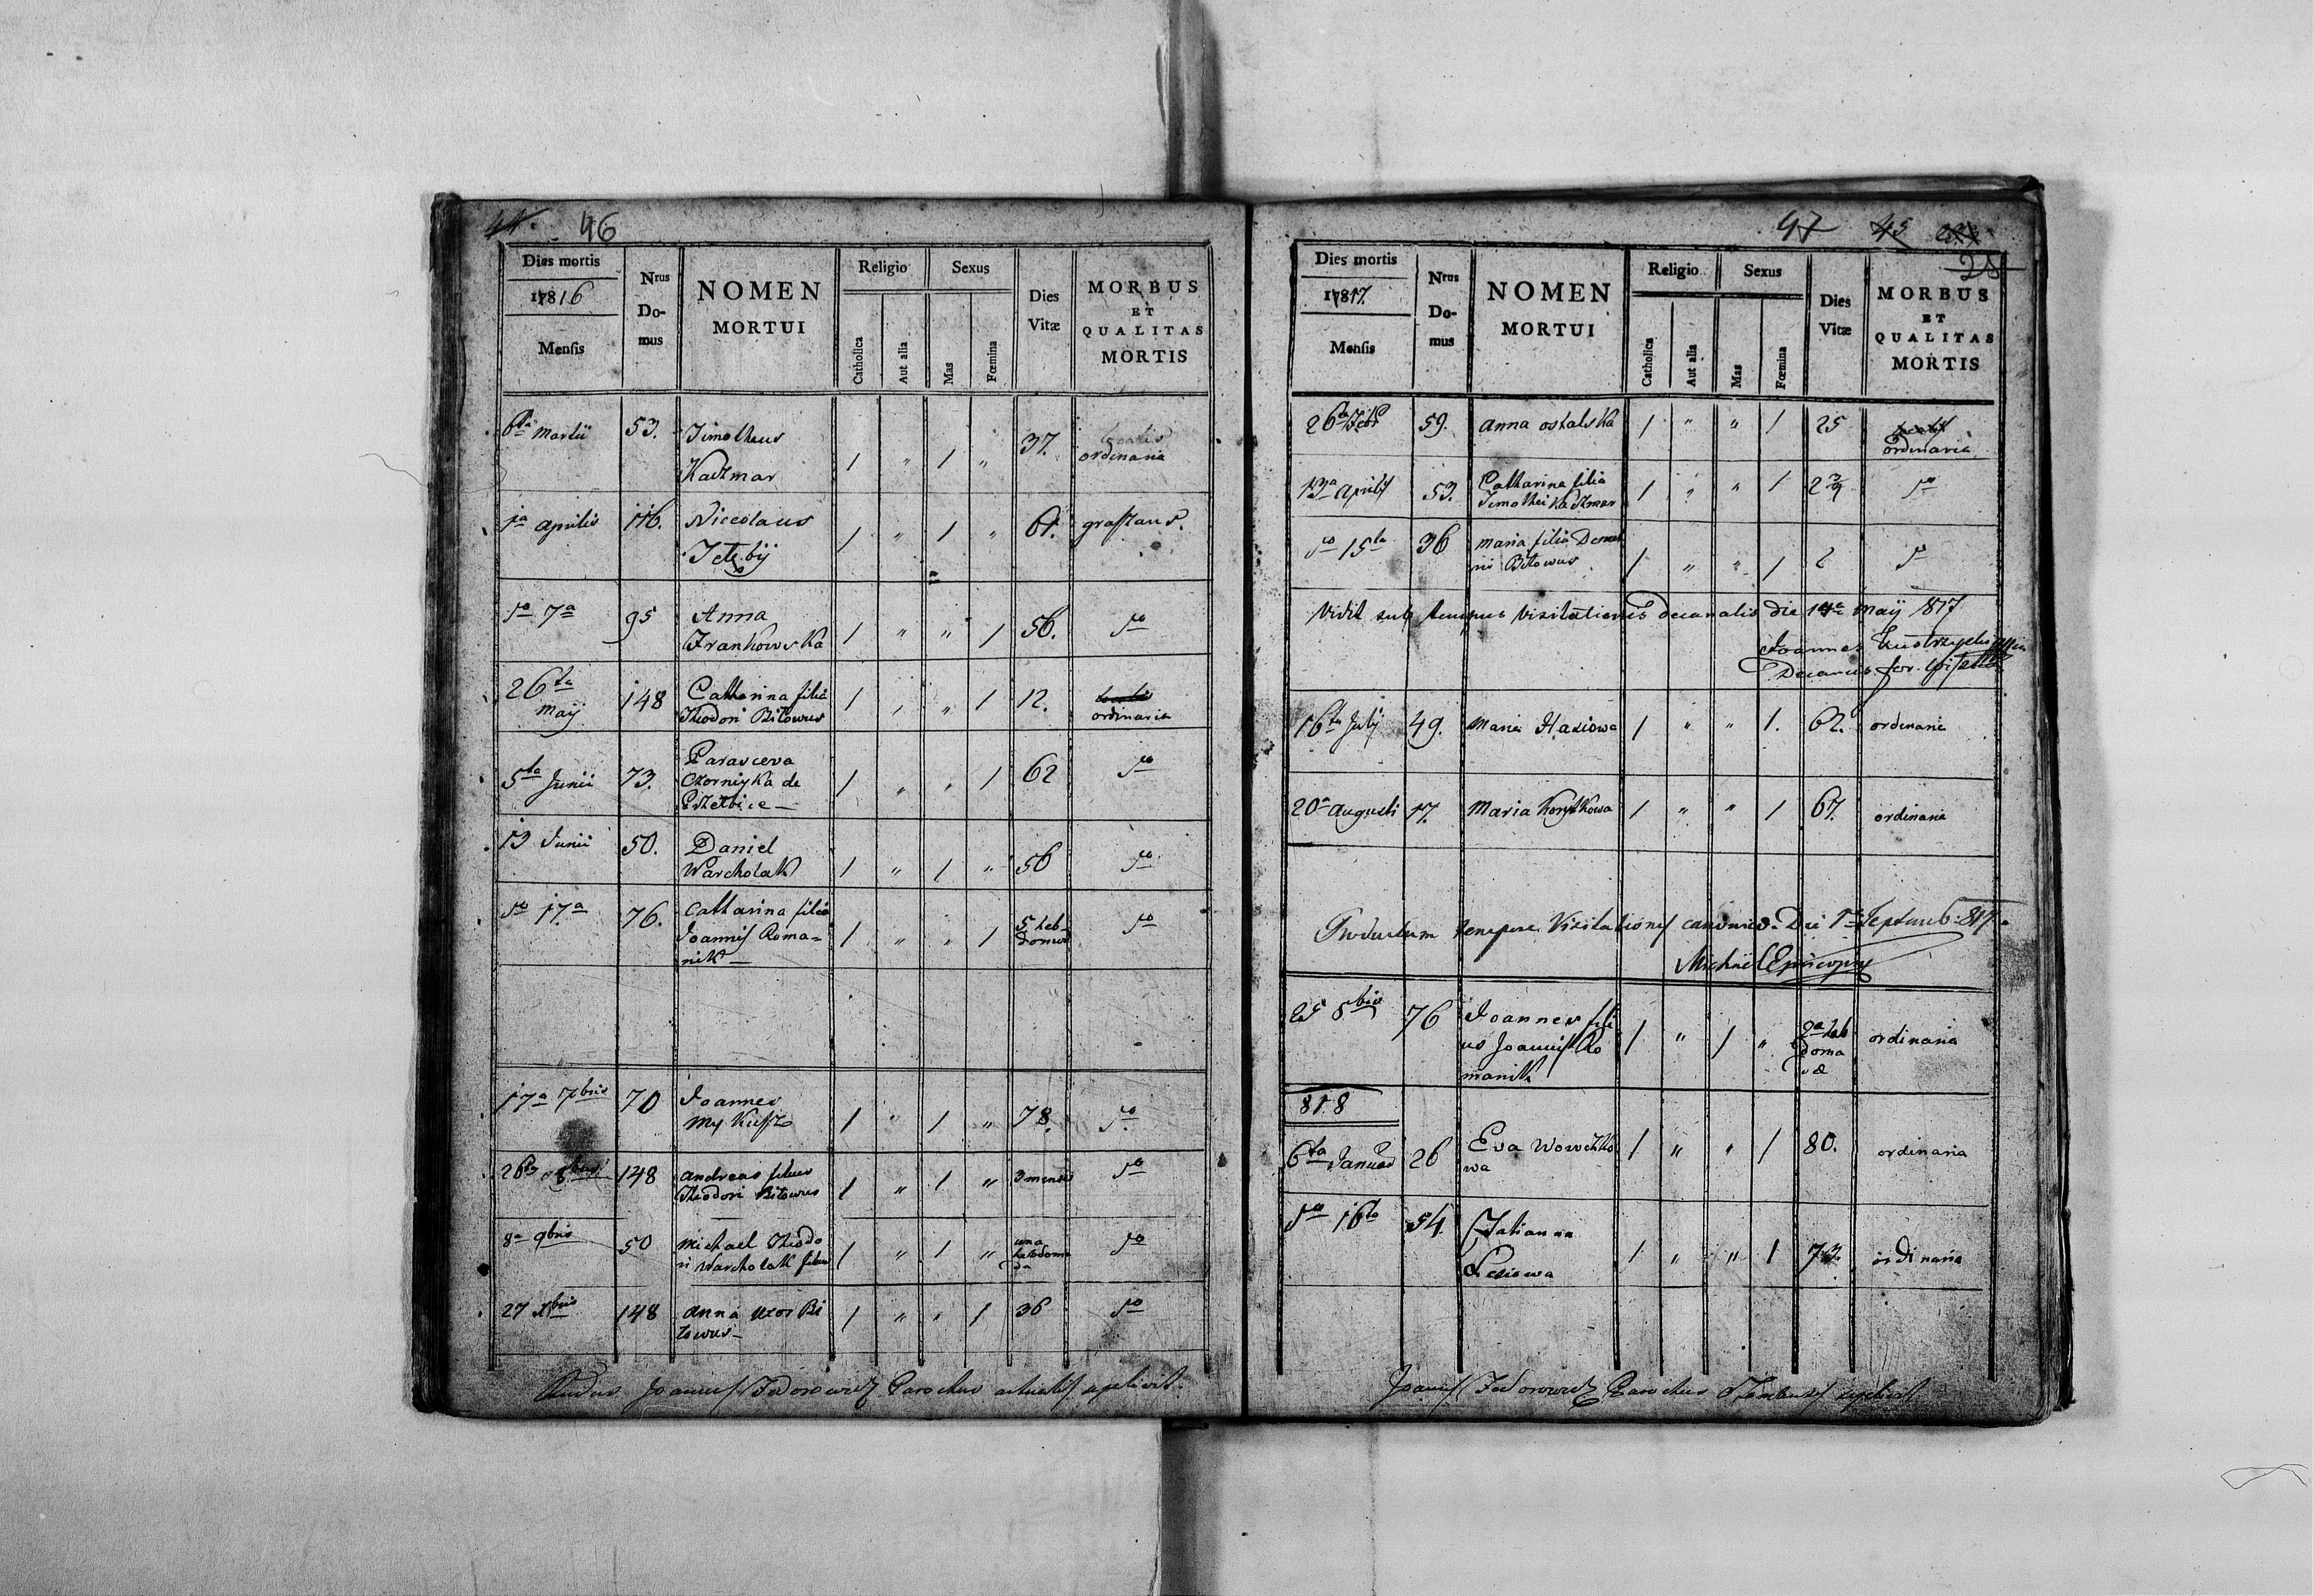 44. 46
Dies mortis
1816
Mensis
Nrus Do-mus
NOMEN MORTUI
Religio
Catholica
Aut alia
Sexus
Mas
Fœmina
Dies Vitæ
MORBUS ET QUALITAS MORTIS
6ta Martii 53. Timotheus Kaczmar 1 " 1 " 37. ordinaria
1a aprilis 116. Nicolaus 1 " 1 " 61.
do 7a 95 Anna Frankowska 1 " " 1 56. do
26ta Maij 148 Catharina filia Theodori Bitowus 1 " " 1 12. ordinaria
5ta Junii 73. Parasceva Czorniyka de 1 " " 1 62 do
13 Junii 50. Daniel Warcholak 1 " 1 " 56 do
do 17a 76. Catharina filia Joannis Roma=nik 1 " " 1 5 heb-domad do
17a 7bris 70 Joannes 1 " 1 " 78. do
26ta 8bris 148 Andreas filius Theodori Bitowus 1 " 1 " 3 menses do
8a 9bris 50 Michael Theodori Warcholak filius 1 " 1 " una hebdomada do
27 Xbris 148 Anna uxor Bitowus 1 " " 1 36 do
Joannes Fedorowicz Parochus
47 45
25
Dies mortis
1817.
Mensis
Nrus Do-mus
NOMEN MORTUI
Religio
Catholica
Aut alia
Sexus
Mas
Fœmina
Dies Vitæ
MORBUS ET QUALITAS MORTIS
26ta Febr 59. Anna Ostalska 1 " " 1 25 ordinaria
13a Aprilis 53. Catharina filia Timothei Kaczmar 1 " " 1 2 do
do 15ta 36 Maria filia Bitowus 1 " " 1 do
Vidit sub tempus Visitationis decanalis die 14a Maij 1817
Joannes
Decanus
16ta Julij 49. Maria 1 " " 1. 62. ordinaria
20a Augusti 17. Maria Korytkowa 1 " " 1 67. ordinaria
Productum tempore Visitationis canonicae Die 1a Septemb: 817.
Michael Episcopus
25 8bris 76 Joannes filius Joannis Romanik 1 " 1 " 2a hebdomadæ ordinaria
818
6ta Januar 26 Eva 1 " " 1 80. ordinaria
do 16ta 54. Tatianna 1 " " 1 73 ordinaria
Joannes Fedorowicz Parochus